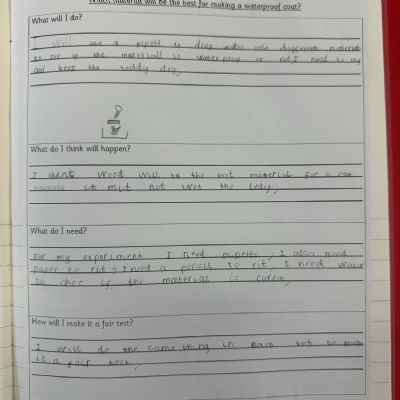 Which material will be the best for making a waterproof coat?
What will I do?
I will use a pipett to drop water onto different materials
to see if the materiall is waterproof or not, I need to try
and keep the teddy dry,
What do I think will happen?
I think wood will be the best material for a coat
because it mit not wet the tedy,
What do I need?
For my experiment I need pipette, I also need
paper to rit, I need a pencil to rit, I need water
to chec if the material is corect,
How will I make it a fair test?
I will do the same thing in each test to make
it a fair test,